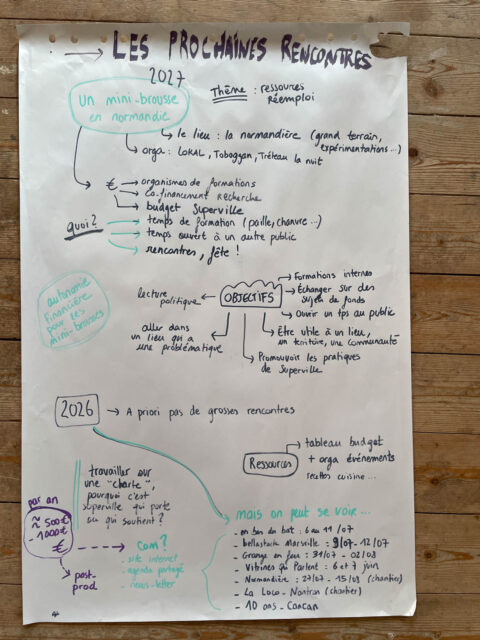 → LES PROCHAINES RENCONTRES
2027
Un mini-brousse
en normandie
Thème : ressources
réemploi
→ le lieu : la normandière (grand terrain,
expérimentations...)
→ orga : LOKAL, Toboggan, Tréteau la nuit
€ → organismes de formations
→ co-financement recherche
→ budget Superville
quoi ? → temps de formation (paille, chanvre ...)
→ temps ouvert à un autre public
→ rencontres, fête !
autonomie
financière
pour les
mini-brousses
OBJECTIFS
lecture
politique
→ Formations internes
→ Échanger sur des
sujets de fonds
→ Ouvrir un tps au public
→ Être utile à un lieu,
un territoire, une communauté
→ Promouvoir les pratiques
de Superville
aller dans
un lieu qui a
une problématique
2026 → A priori pas de grosses rencontres
Ressources
→ tableau budget
+ orga événements
recettes cuisine ...
travailler sur
une "charte",
pourquoi c'est
superville qui porte
ou qui soutient ?
par an
≈ 500€
- 1000€
€
→ post-
prod
Com ?
- site internet
- agenda partagé
- news-letter
mais on peut se voir ...
- en bas du bat : 6 au 11 /07
- bellastock Marseille : 9/07 - 12/07
- Grange en feu : 31/07 - 02/08
- Vitrines qui Parlent : 6 et 7 juin
- Normandière : 27/07 - 15/08 (chantier)
- La Loco - Nontron (chantier)
- 10 ans - Cancan